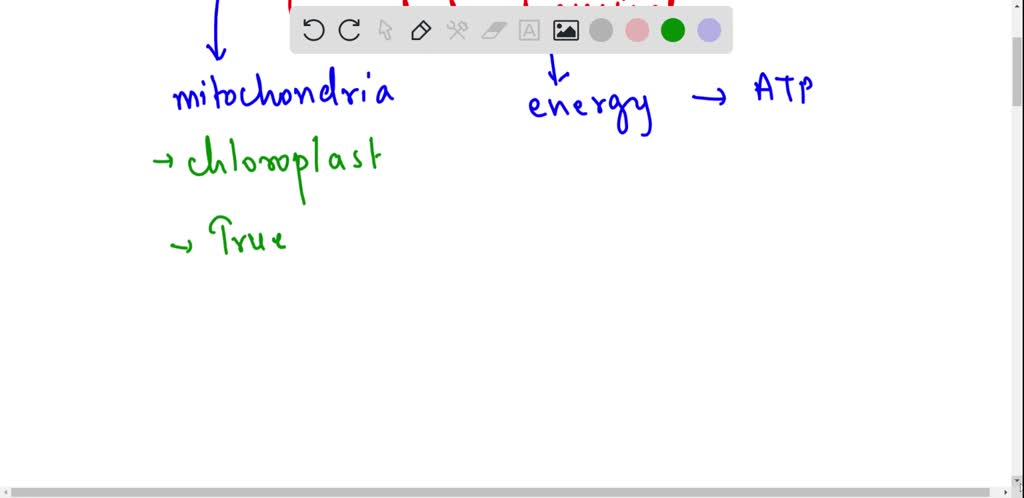 mitochondria
energy → ATP
→ chloroplast
→ True